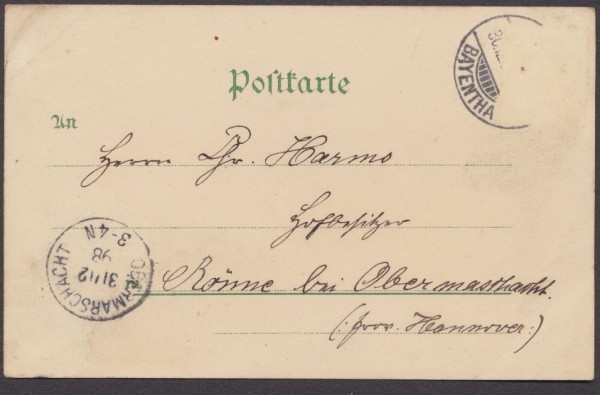 Postkarte
BAYENTHA
An
Herrn Chr. Harms
Hofbesitzer
Rönne bei Obermarschacht.
(: prov. Hannover :)
OBERMARSCHACHT
31/12
98
3-4N